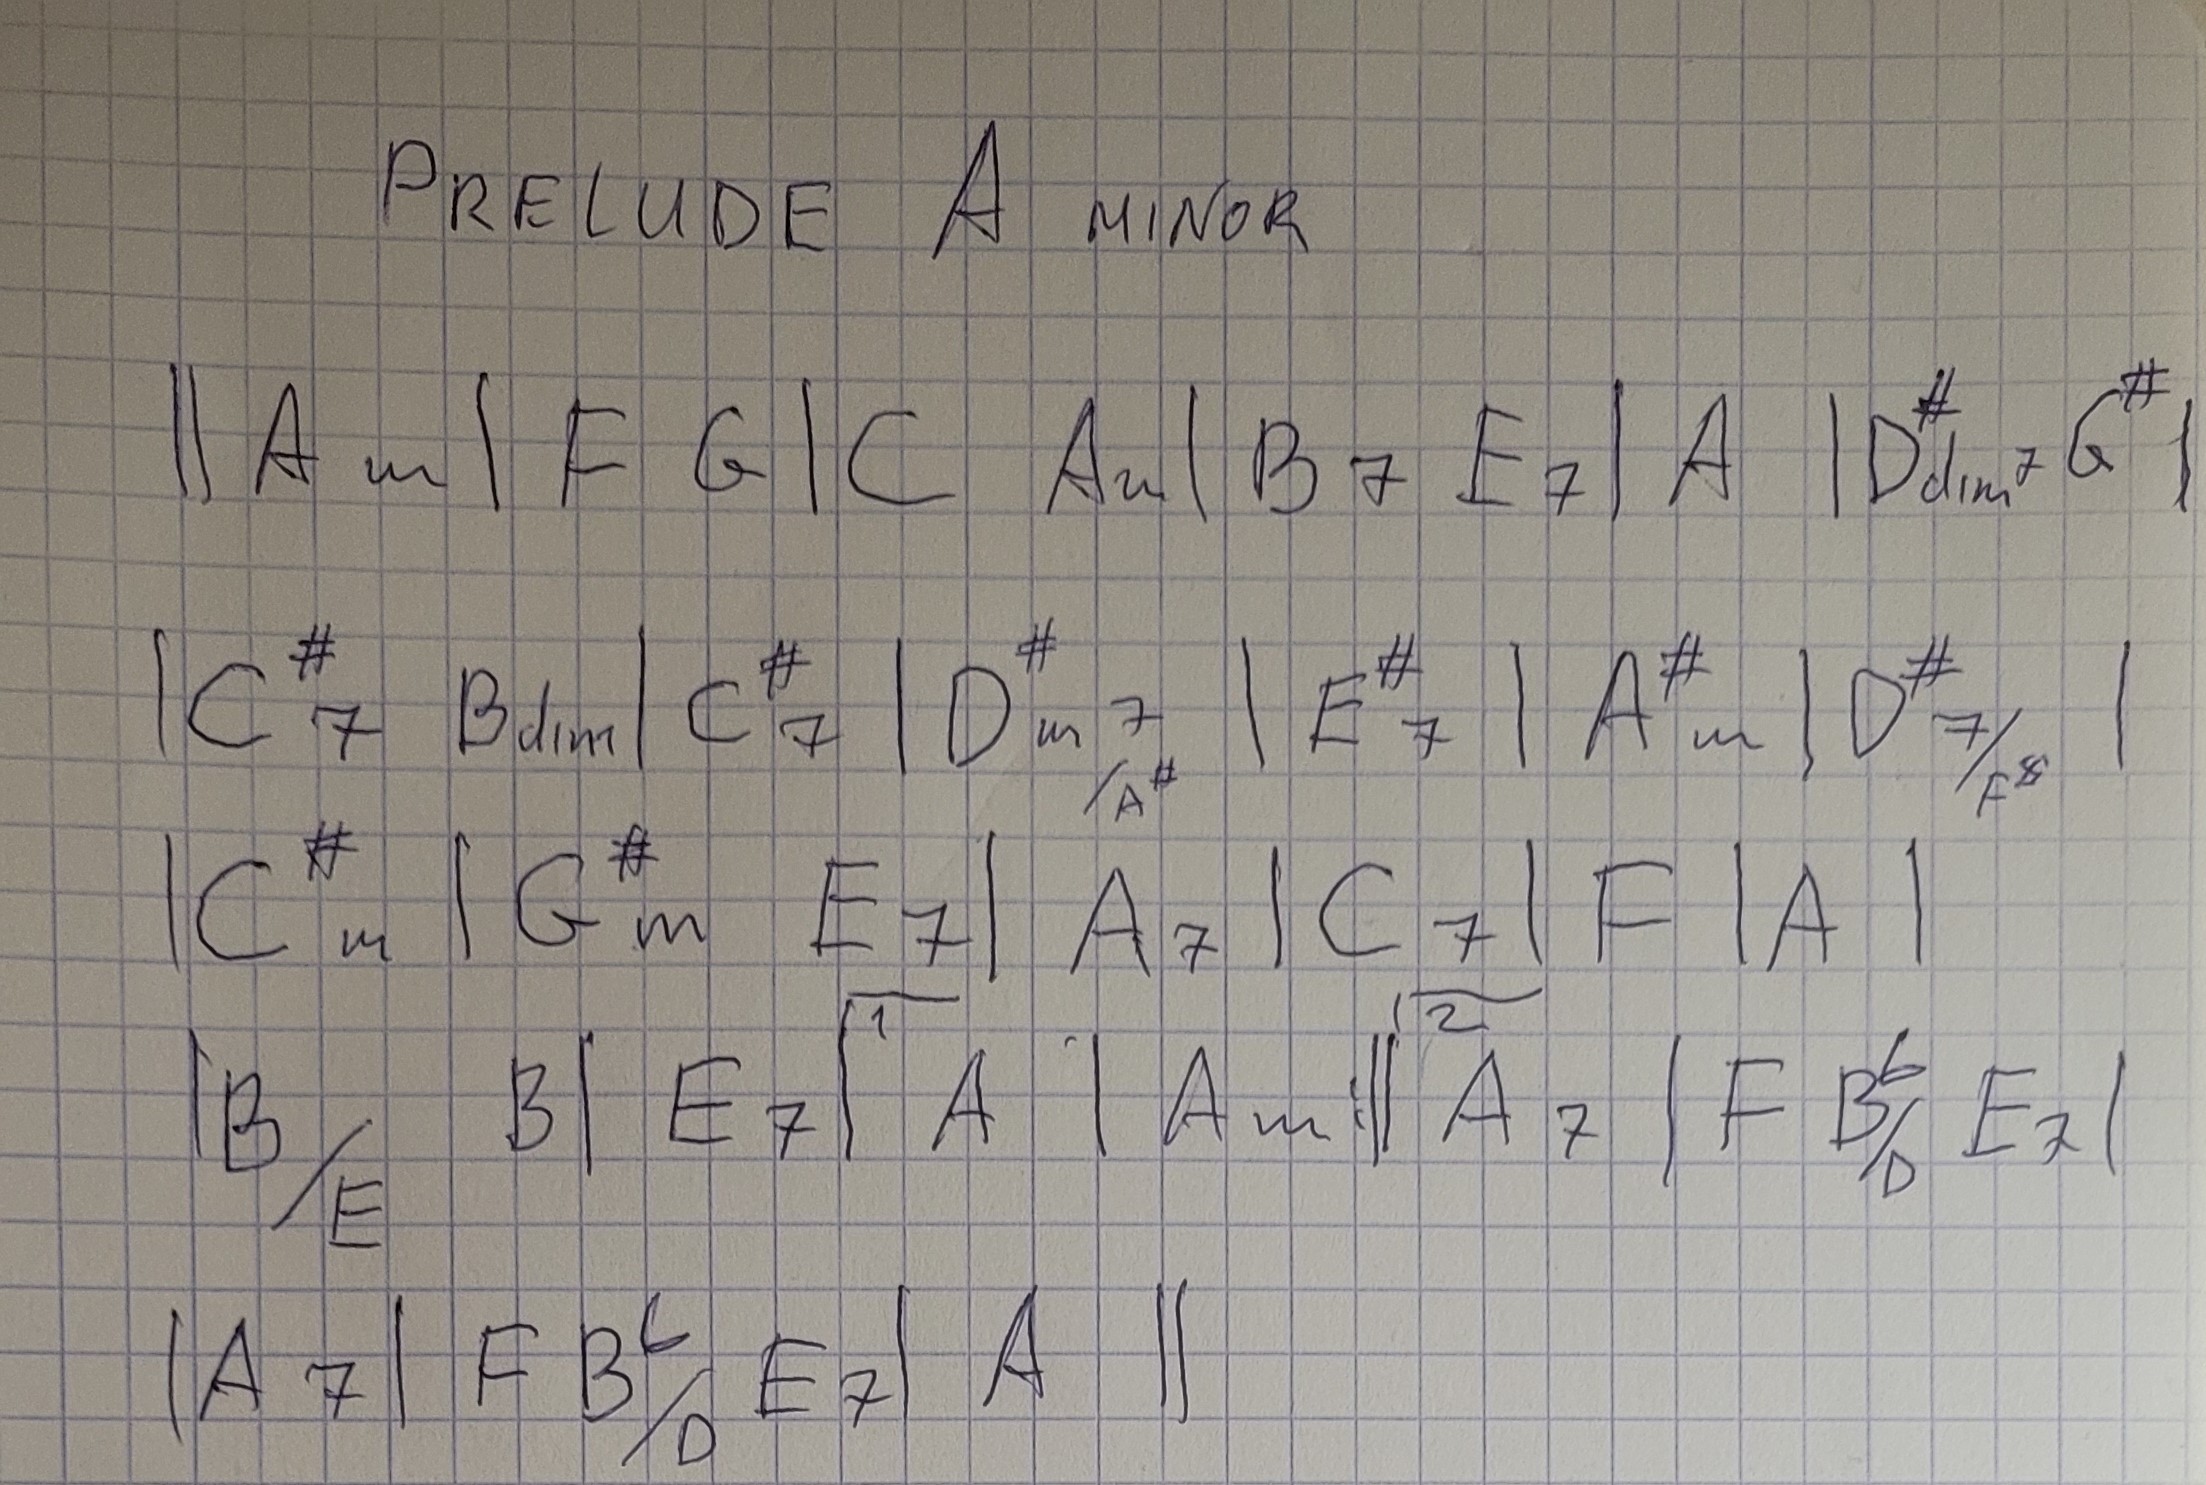 PRELUDE A MINOR
|| Am | F G | C Am | B7 E7 | A | D#dim7 G# |
| C#7 Bdim | C#7 | D#m7/A# | E#7 | A#m | D#7/F𝄪 |
| C#m | G#m E7 | A7 | C7 | F | A |
| B/E B | E7 | 1 A | Am :|| 2 A7 | F B6/D E7 |
| A7 | F B6/D E7 | A ||